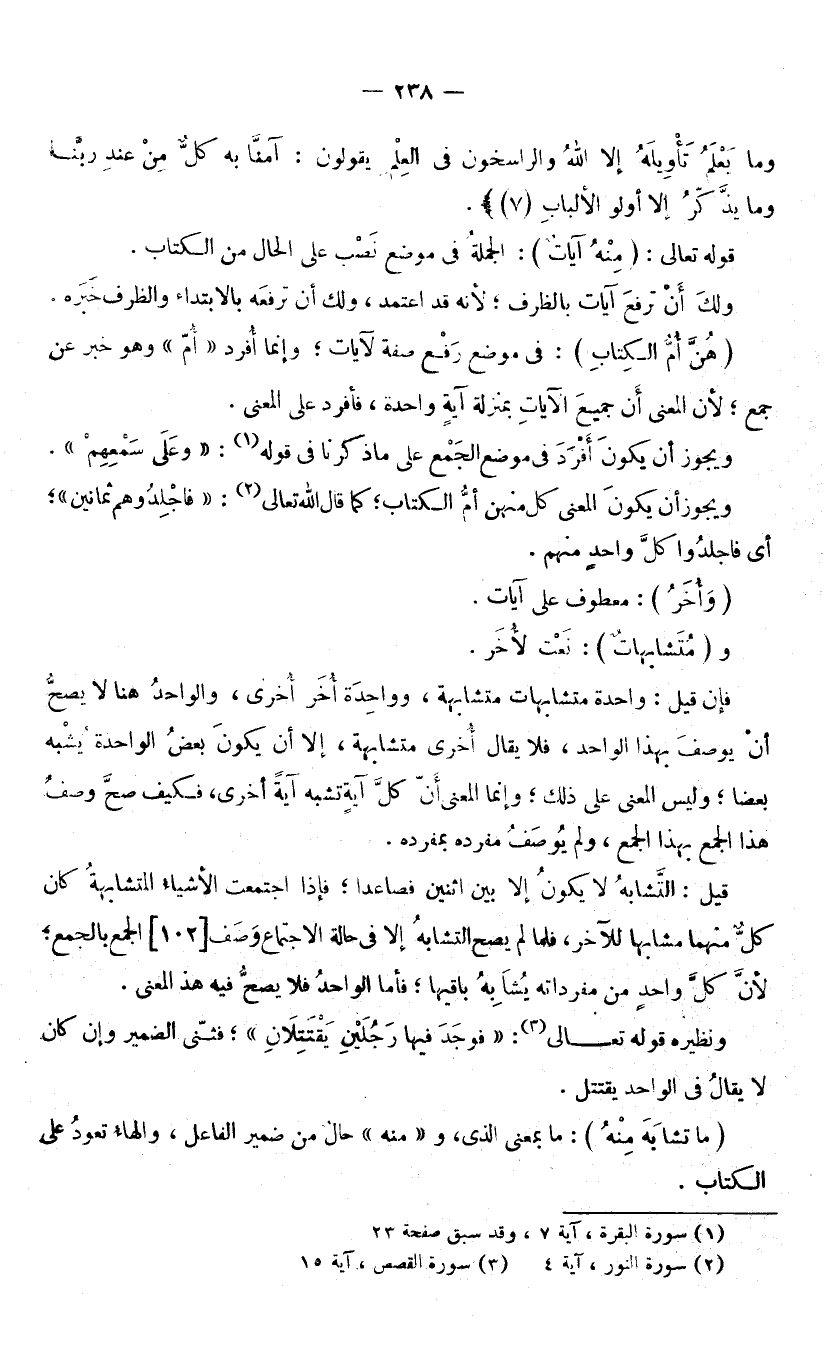 — ٢٣٨ —
وما يَعْلَمُ تَأْوِيلَهُ إلا اللهُ والراسخون فى العِلْمِ يقولون : آمنَّا به كلٌّ مِنْ عندِ ربِّنَا
وما يذَّكَّرُ إلا أولو الألبابِ (٧)﴾ .
قوله تعالى : ( مِنْهُ آيَاتٌ ) : الجملةُ فى موضع نَصْب على الحال من الكتاب .
ولكَ أَنْ ترفعَ آيات بالظرف ؛ لأنه قد اعتمد ، ولك أن ترفعَه بالابتداء والظرف خَبَره .
( هُنَّ أُمُّ الكِتابِ ) : فى موضع رَفْع صفة لآيات ؛ وإنما أُفرد « أُمّ » وهو خبر عن
جمع ؛ لأن المعنى أن جميعَ الآياتِ بمنزلة آيةٍ واحدة ، فأفرد على المعنى .
ويجوز أن يكونَ أَفْرَدَ فى موضع الجَمْع على ما ذكرنا فى قوله(١) : « وعَلَى سَمْعِهِمْ » .
ويجوز أن يكونَ المعنى كل منهن أمُّ الكتاب؛ كما قال الله تعالى(٢) : « فاجْلِدُوهم ثمانين»؛
أى فاجلدُوا كلَّ واحدٍ منهم .
( وَأُخَرُ ) : معطوف على آيات .
و ( مُتَشابِهاتٌ ) : نَعْت لأُخَر .
فإن قيل : واحدة متشابهات متشابهة ، وواحِدَة أُخَر أُخرى ، والواحدُ هنا لا يصحُّ
أنْ يوصفَ بهذا الواحد ، فلا يقال أُخرى متشابهة ، إلا أن يكونَ بعضُ الواحدة يُشْبه
بعضا ؛ وليس المعنى على ذلك ؛ وإنما المعنى أنّ كلَّ آيةٍ تشبه آيةً أخرى، فكيف صحَّ وصفُ
هذا الجمع بهذا الجمع ، ولم يُوصَفُ مفرده بمفرده .
قيل : التَّشابهُ لا يكونُ إلا بين اثنين فصاعدا ؛ فإذا اجتمعت الأشياء المتشابهةُ كان
كلٌّ منهما مشابها للآخر، فلما لم يصح التشابهُ إلا فى حالة الاجتماع وَصَف[١٠٢] الجمع بالجمع؛
لأنَّ كلَّ واحدٍ من مفرداته يُشَابِهُ باقيها ؛ فأما الواحدُ فلا يصحُّ فيه هذ المعنى .
ونظيره قوله تعالى(٣): « فوجَدَ فيها رَجُلَيْنِ يَقْتَتِلَانِ » ؛ فثنَّى الضمير وإن كان
لا يقالُ فى الواحد يقتتل .
( ما تَشَابَهَ مِنْهُ ) : ما بمعنى الذى، و « منه » حال من ضمير الفاعل ، والهاء تعودُ على
الكتاب .
(١) سورة البقرة ، آية ٧ ، وقد سبق صفحة ٢٣
(٢) سورة النور ، آية ٤ (٣) سورة القصص ، آية ١٥